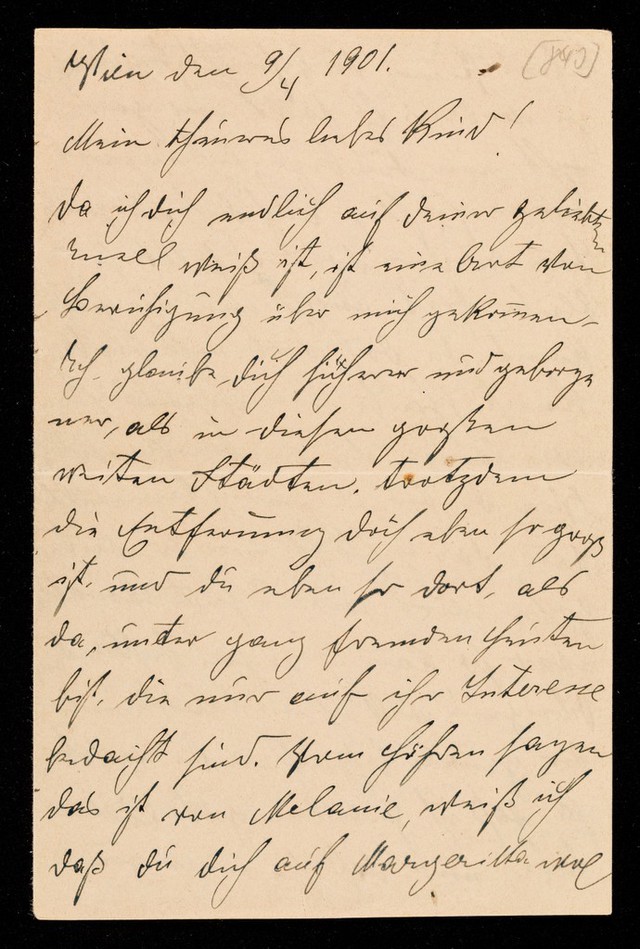 Wien den 9/4 1901.
[840]
Mein theures liebes Kind!
Da ich dich endlich auf deiner geliebten
Insell weiß ist, ist eine Art von
Beruhigung über mich gekom̅en-
Ich glaube dich sicherer und geborge
ner, als in diesen großen
weiten Städten. trotzdem
die Entfernung doch eben so groß
ist. und du eben so dort, als
da, unter ganz fremden Leuten
bist. die nur auf ihr Interesse
bedacht sind. Vom hören sagen
das ist von Melanie, weiß ich
daß du dich auf Margeritta wol